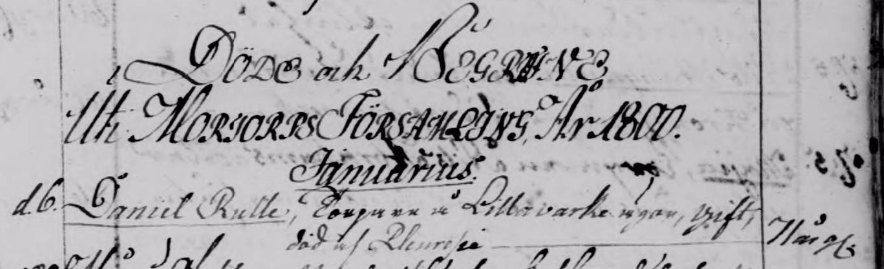 Döde och Begrafne
Uti Mortorps Församling, År 1800.
Januarius.
d. 6. Daniel Rulle, Torpare å Lilla ägor, gift,
död af Pleuresie